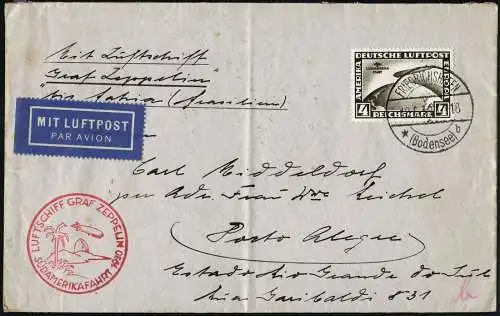 Mit Luftschiff
"Graf Zeppelin"
"via Bahia (Brasilien)
MIT LUFTPOST
PAR AVION
DEUTSCHE LUFTPOST
AMERIKA
EUROPA
SÜDAMERIKA
FAHRT
4 REICHSMARK 4
FRIEDRICHSHAFEN
(Bodensee) b
Carl Middeldorf
per Adr. Frau Wwe Reichel
Porto Alegre
Estado Rio Grande do Sul
Rua Garibaldi 831
LUFTSCHIFF GRAF ZEPPELIN
SÜDAMERIKAFAHRT 1930